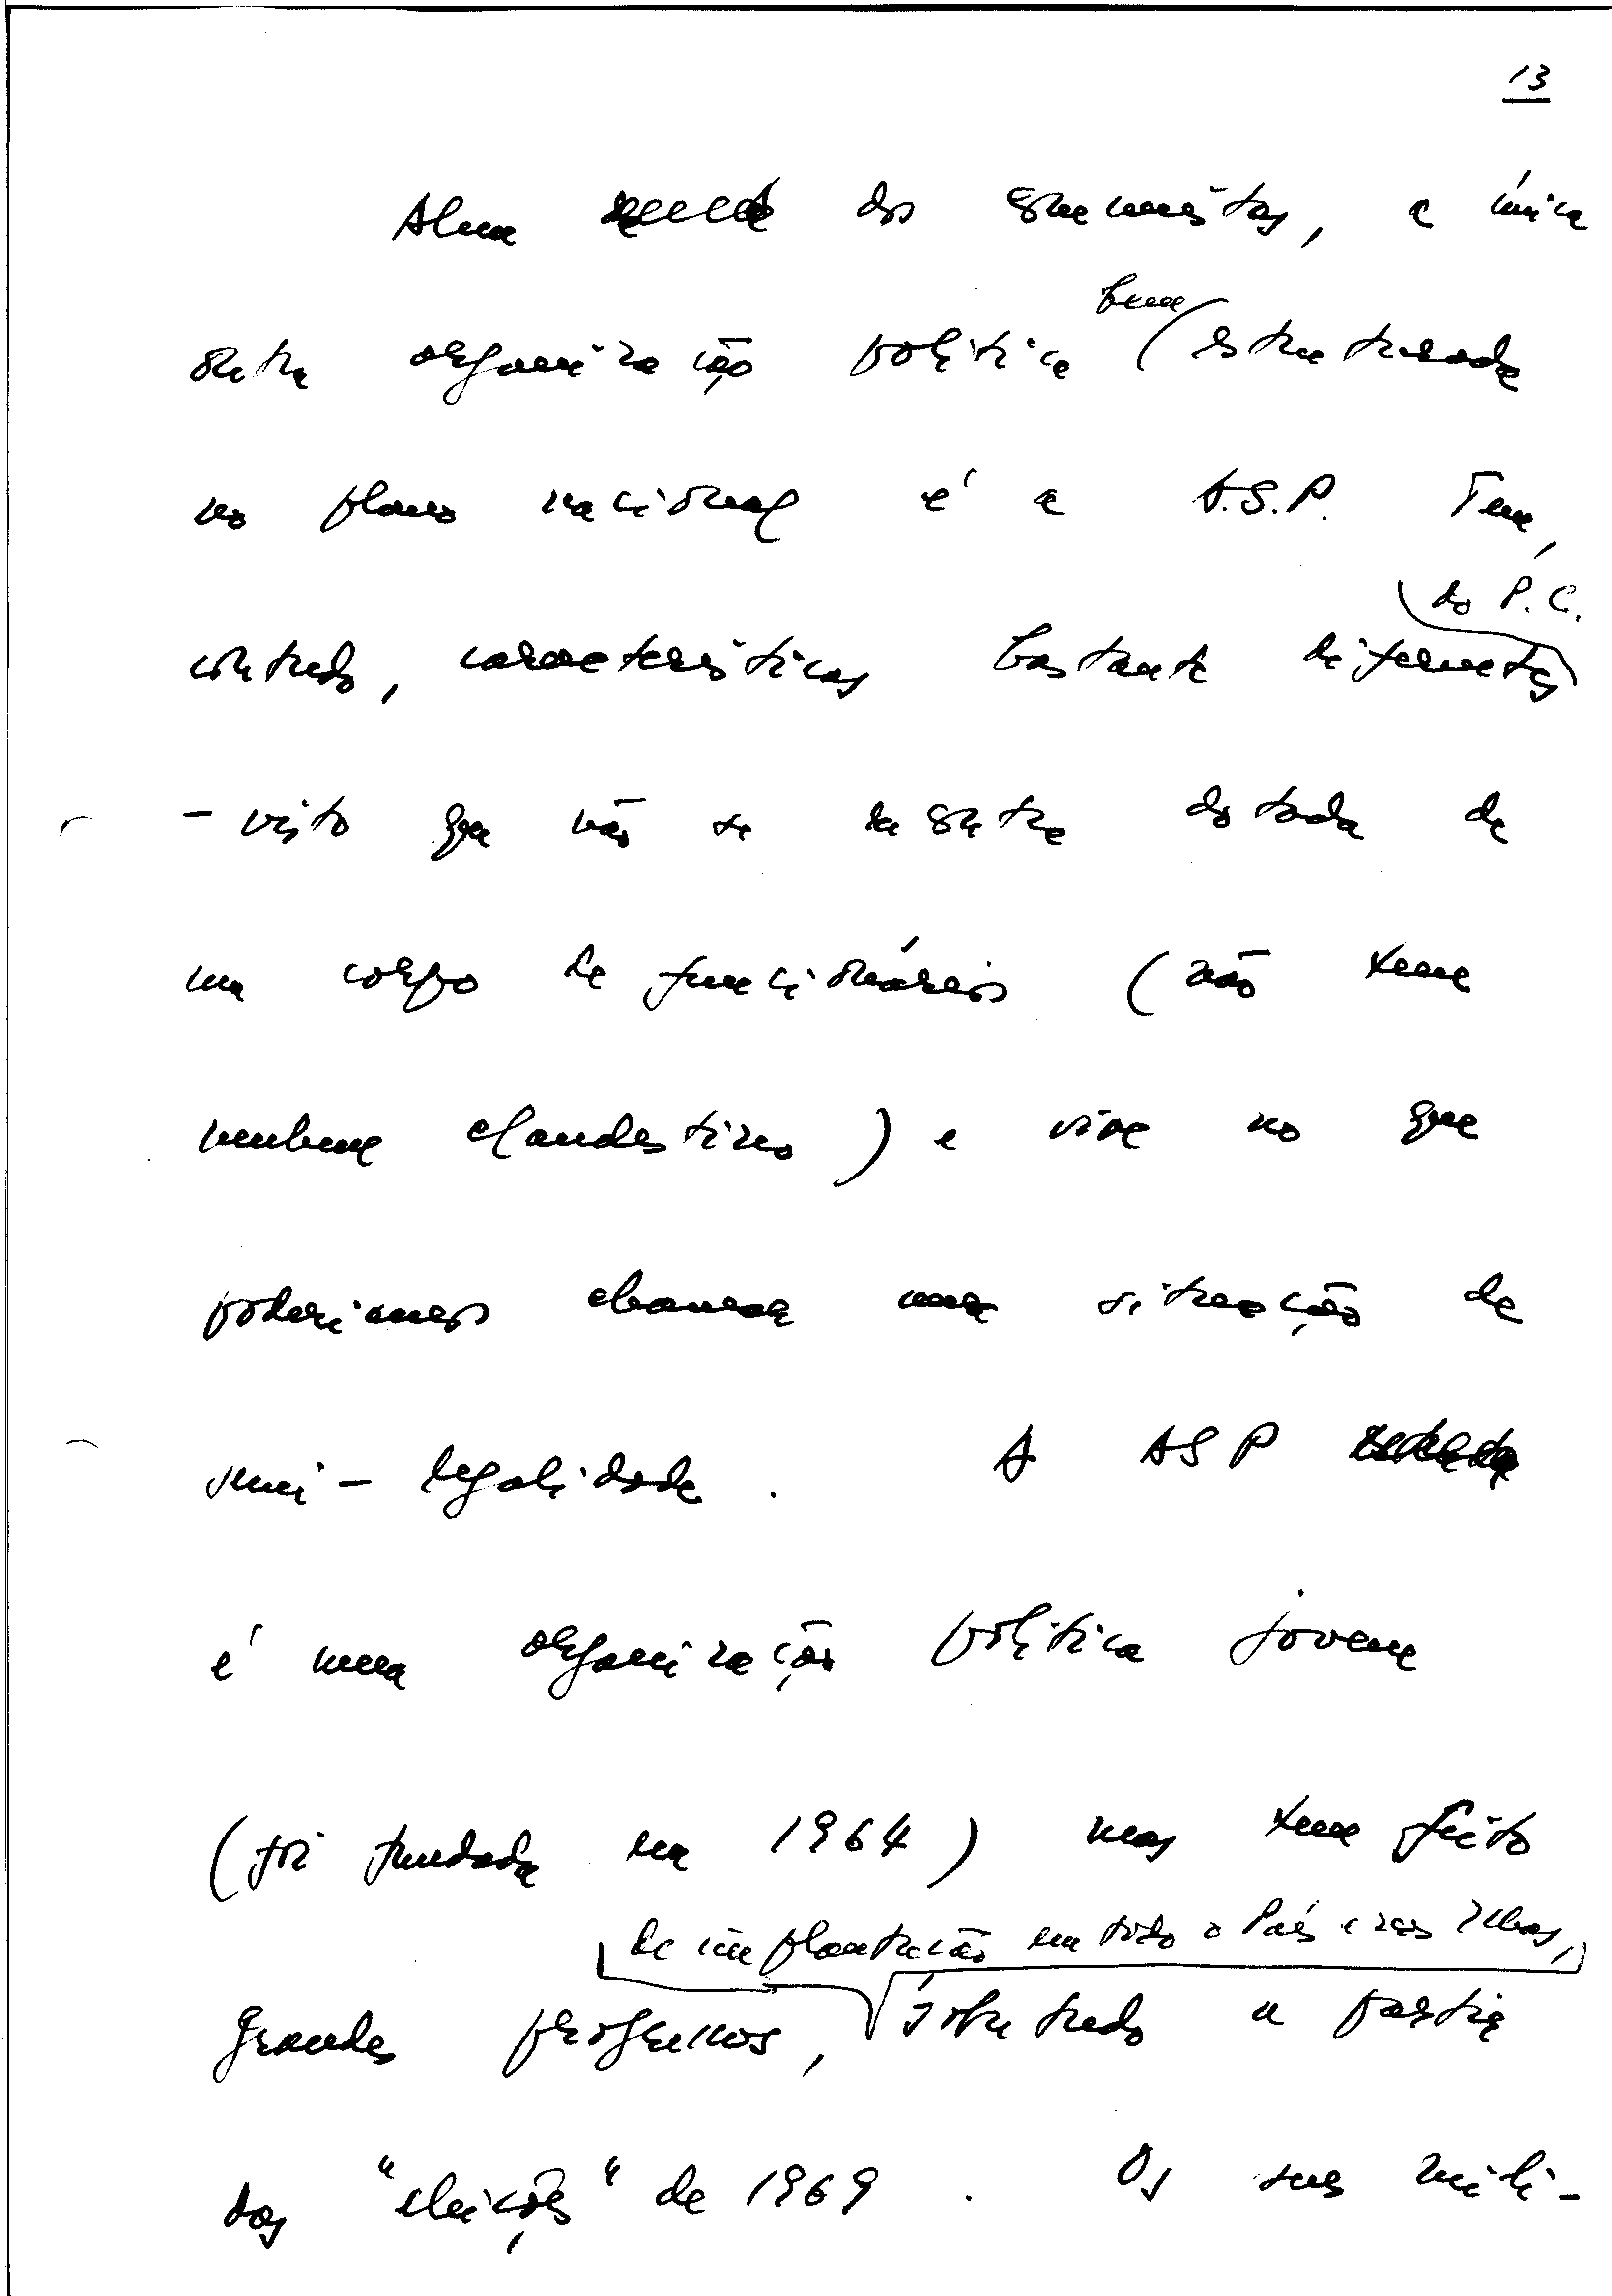 13
Além dos comunistas, a única
bem
outra organização política estruturada
no plano nacional é a A.S.P. Tem,
do P.C.
contudo, características bastante diferentes
- visto que não se encontra dotada de
um corpo de funcionários (não tem
nenhum clandestino) e vive no que
poderíamos chamar uma situação de
semi-legalidade. A ASP
é uma organização política jovem
(foi fundada em 1964) mas tem feito
de implantação em todo o País e nas Ilhas,
grandes progressos, sobretudo a partir
das "eleições" de 1969. Os seus mili-